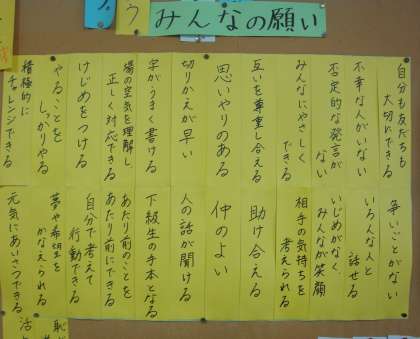 みんなの願い
自分も友だちも
大切にできる
不幸な人がいない
否定的な発言が
ない
みんなにやさしく
できる
互いを尊重し合える
思いやりのある
切りかえが早い
字がうまく書ける
場の空気を理解し、
正しく対応できる
けじめをつける
やることを
しっかりやる
積極的に
チャレンジできる
争いごとがない
いろんな人と
話せる
いじめがなく、
みんなが笑顔
相手の気持ちを
考えられる
助け合える
仲のよい
人の話が聞ける
下級生の手本となる
あたり前のことを
あたり前にできる
自分で考えて
行動できる
夢や希望を
かなえられる
元気にあいさつできる